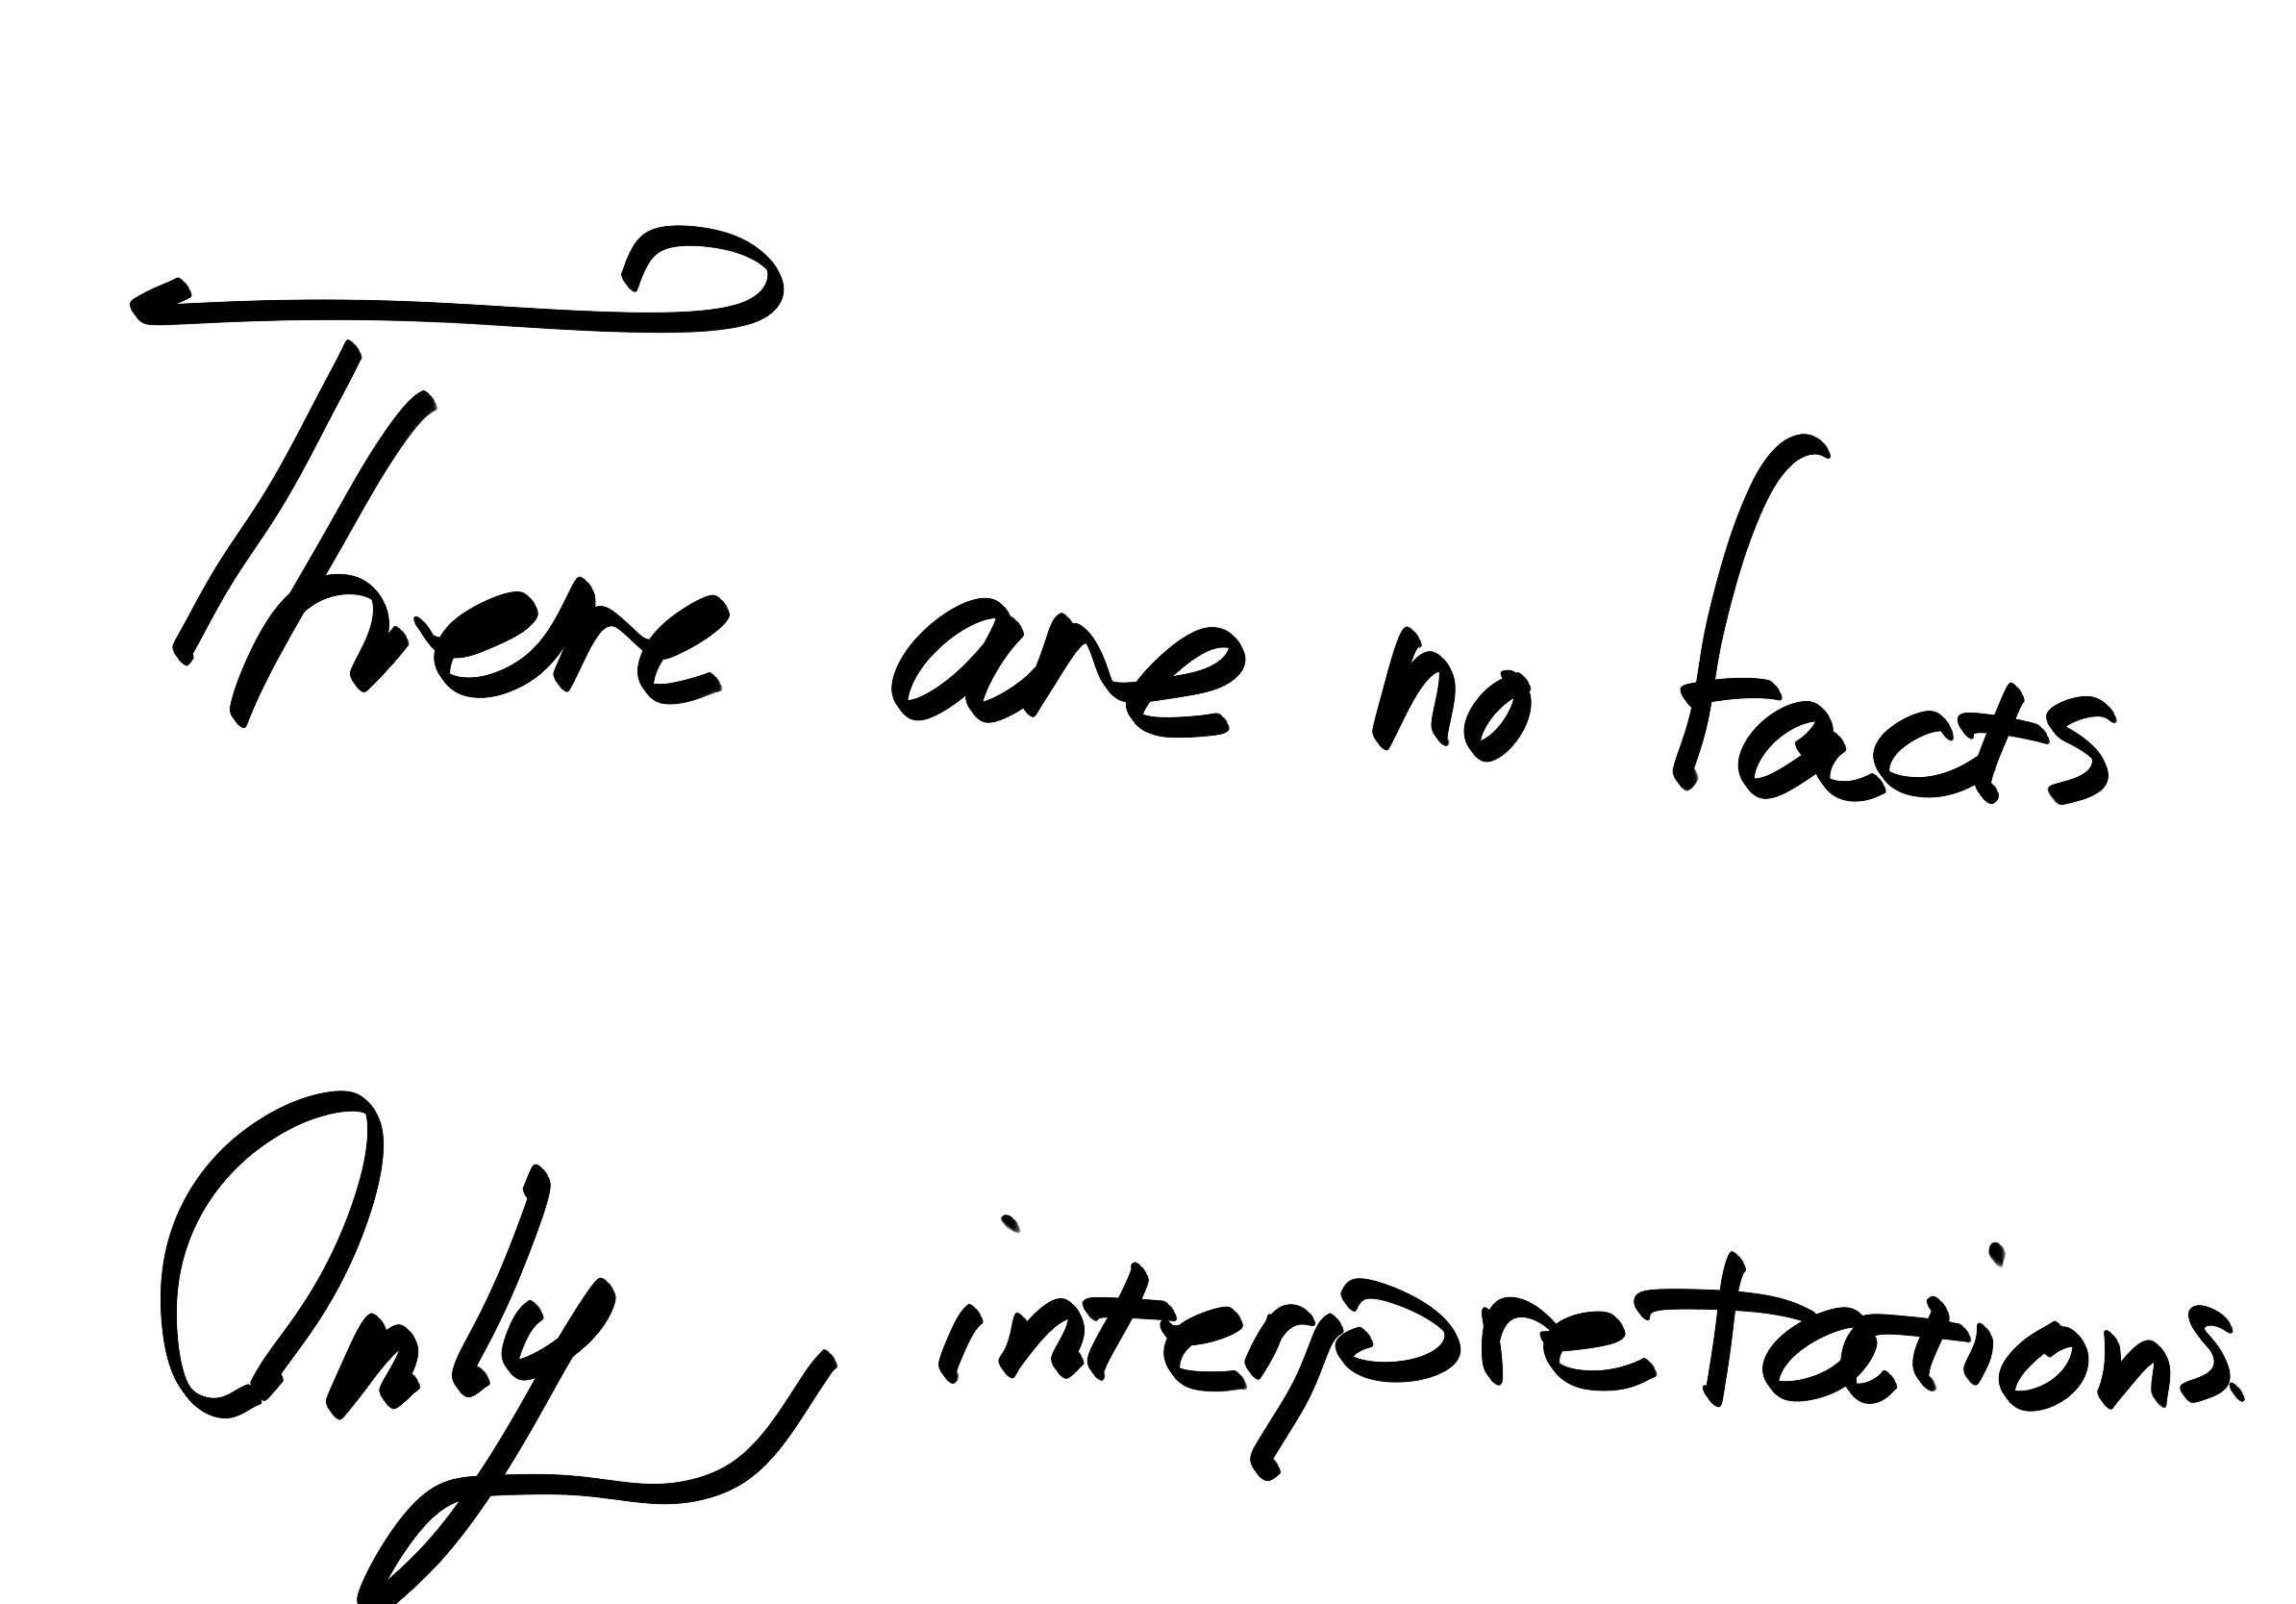 There are no facts
Only interpretations.